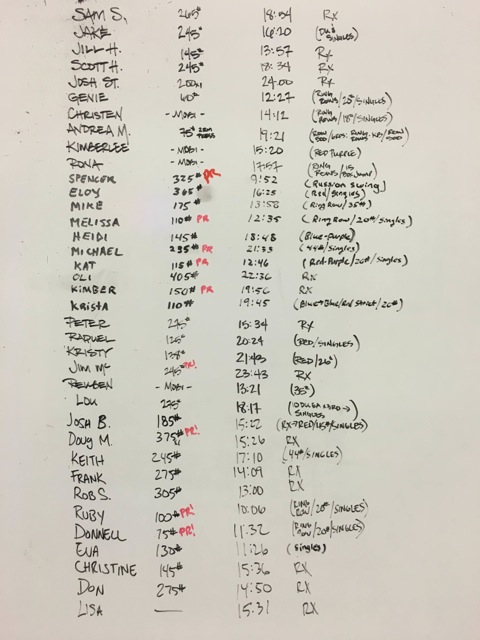 SAM S. 265# 18:54 RX
JAKE 245# 16:20 (DU'S SINGLES)
JILL H. 145# 13:57 RX
SCOTT H. 245# 18:34 RX
JOSH ST. 24:00 RX
GENIE 60# 12:27 (RING ROWS/20#/SINGLES)
CHRISTEN -MOBI- 14:12 (RING ROWS/18#/SINGLES)
ANDREA M. 75# PRESS 19:21
KIMBERLEE -MOBI- 15:20 (RED PURPLE)
RONA -MOBI- 17:57
SPENCER 325# PR 9:52 (Russian Swing)
ELOY 365# 16:25 (Red/Singles)
MIKE 175# 13:58 (Ring Row/35#)
MELISSA 110# PR 12:35 (Ring Row/20#/Singles)
HEIDI 145# 18:48 (Blue-Purple)
MICHAEL 235# PR 21:33 (44#/Singles)
KAT 115# PR 12:46 (Red-Purple/26#/Singles)
OLI 405# 22:36 RX
KIMBER 150# PR 19:56 RX
KRISTA 110# 19:45 (Blue+Blue/Red Strict/26#)
PETER 275# 15:34 RX
RAQUEL 125# 20:24 (RED/SINGLES)
KRISTY 138# 21:43 (RED/26#)
JIM Mc 245# PR! 23:43 RX
REUBEN -MOBI- 13:21 (35#)
LOU 275# 18:17 (10 DU EA → SINGLES)
JOSH B. 185# 15:22 (RX→RED/SINGLES)
DOUG M. 375# PR! 15:26 RX
KEITH 245# 17:10 (44#/SINGLES)
FRANK 275# 14:09 RX
ROB S. 305# 13:00 RX
RUBY 100# PR! 10:06 (RING ROW/20#/SINGLES)
DONNELL 75# PR! 11:32 (RING ROW/20#/SINGLES)
EVA 130# 11:26 (Singles)
CHRISTINE 145# 15:36 RX
DON 275# 14:50 RX
LISA — 15:31 RX